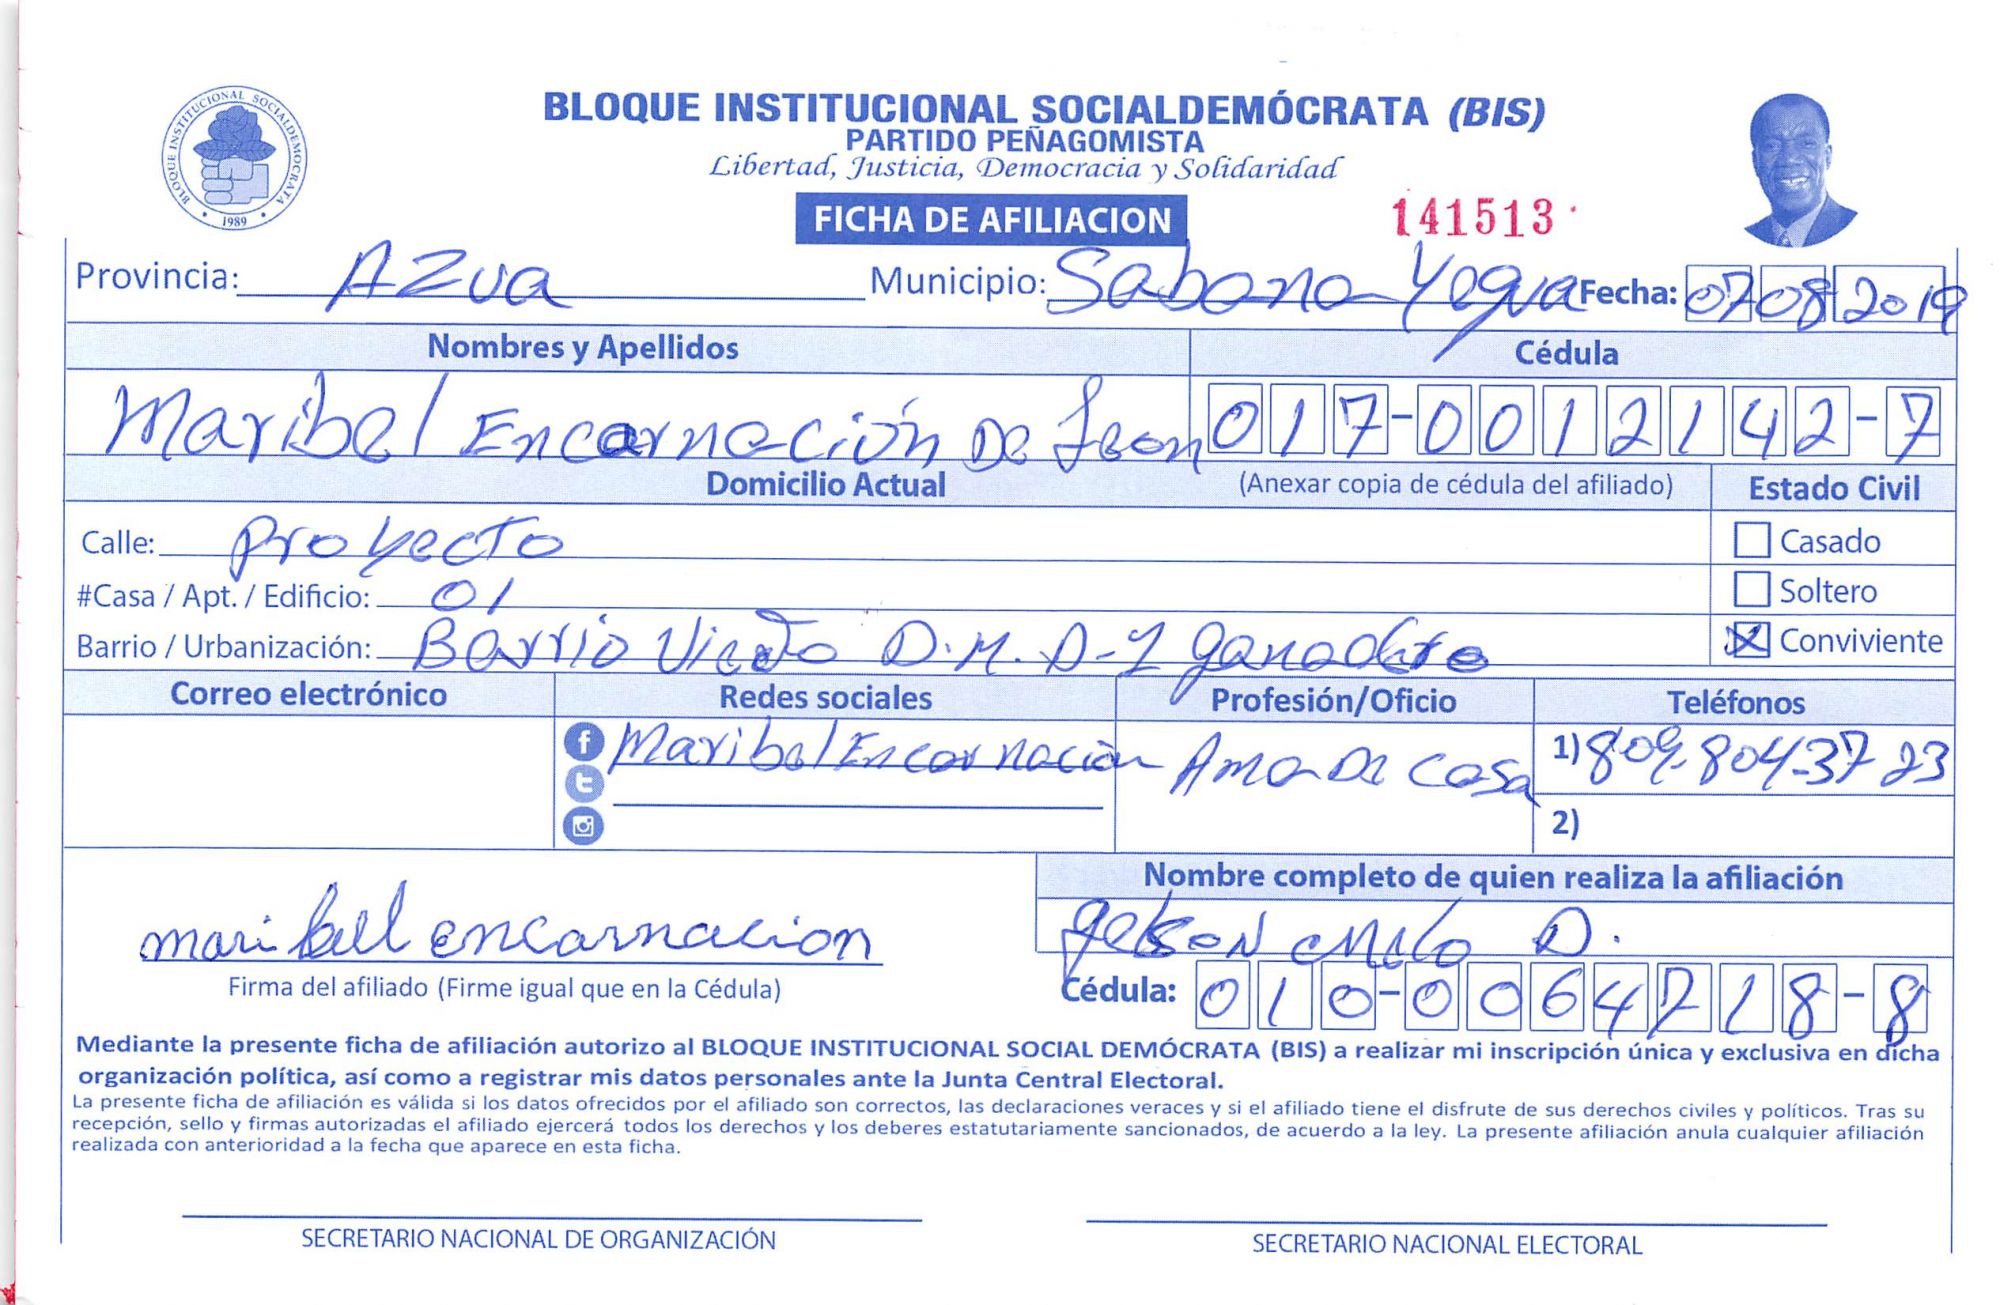 BLOQUE INSTITUCIONAL SOCIALDEMOCRATA
1989
BLOQUE INSTITUCIONAL SOCIALDEMÓCRATA (BIS)
PARTIDO PEÑAGOMISTA
Libertad, Justicia, Democracia y Solidaridad
FICHA DE AFILIACION
141513
Provincia: AZUa Municipio: Sabana Yegua Fecha: 07 08 2019
Nombres y Apellidos Cédula
Maribel Encarnación De Leon 017-0012142-7
Domicilio Actual (Anexar copia de cédula del afiliado) Estado Civil
Calle: Proyecto Casado
#Casa / Apt. / Edificio: 01 Soltero
Barrio / Urbanización: Barrio D.M. D-1 ganadero X Conviviente
Correo electrónico Redes sociales Profesión/Oficio Teléfonos
Maribel Encarnación Ama De Casa 1) 809-804-3723
2)
Nombre completo de quien realiza la afiliación
maribell encarnacion D.
Firma del afiliado (Firme igual que en la Cédula) Cédula: 010-0064718-8
Mediante la presente ficha de afiliación autorizo al BLOQUE INSTITUCIONAL SOCIAL DEMÓCRATA (BIS) a realizar mi inscripción única y exclusiva en dicha
organización política, así como a registrar mis datos personales ante la Junta Central Electoral.
La presente ficha de afiliación es válida si los datos ofrecidos por el afiliado son correctos, las declaraciones veraces y si el afiliado tiene el disfrute de sus derechos civiles y políticos. Tras su
recepción, sello y firmas autorizadas el afiliado ejercerá todos los derechos y los deberes estatutariamente sancionados, de acuerdo a la ley. La presente afiliación anula cualquier afiliación
realizada con anterioridad a la fecha que aparece en esta ficha.
SECRETARIO NACIONAL DE ORGANIZACIÓN SECRETARIO NACIONAL ELECTORAL